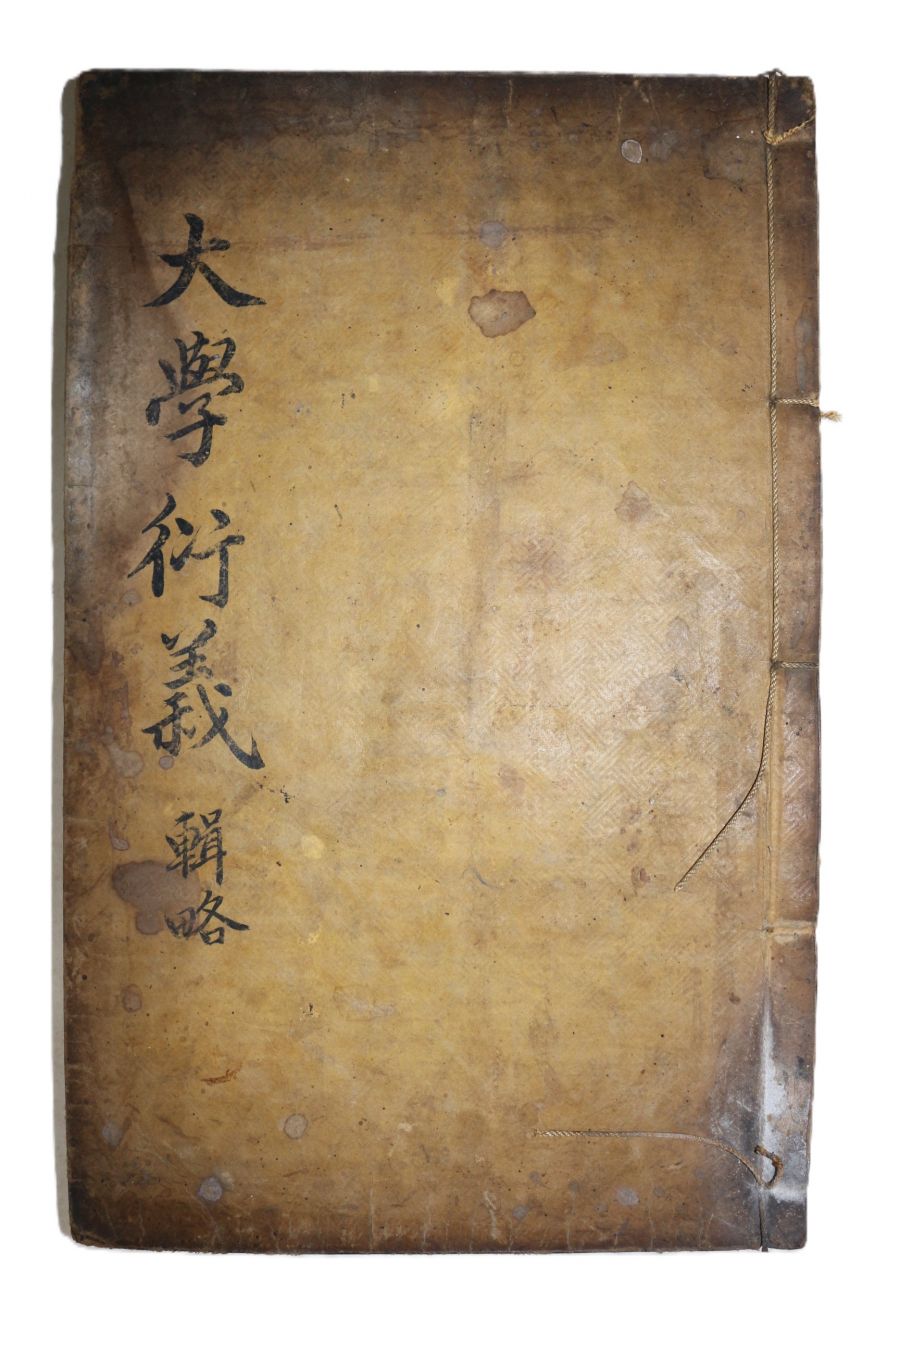 大學衍義輯略